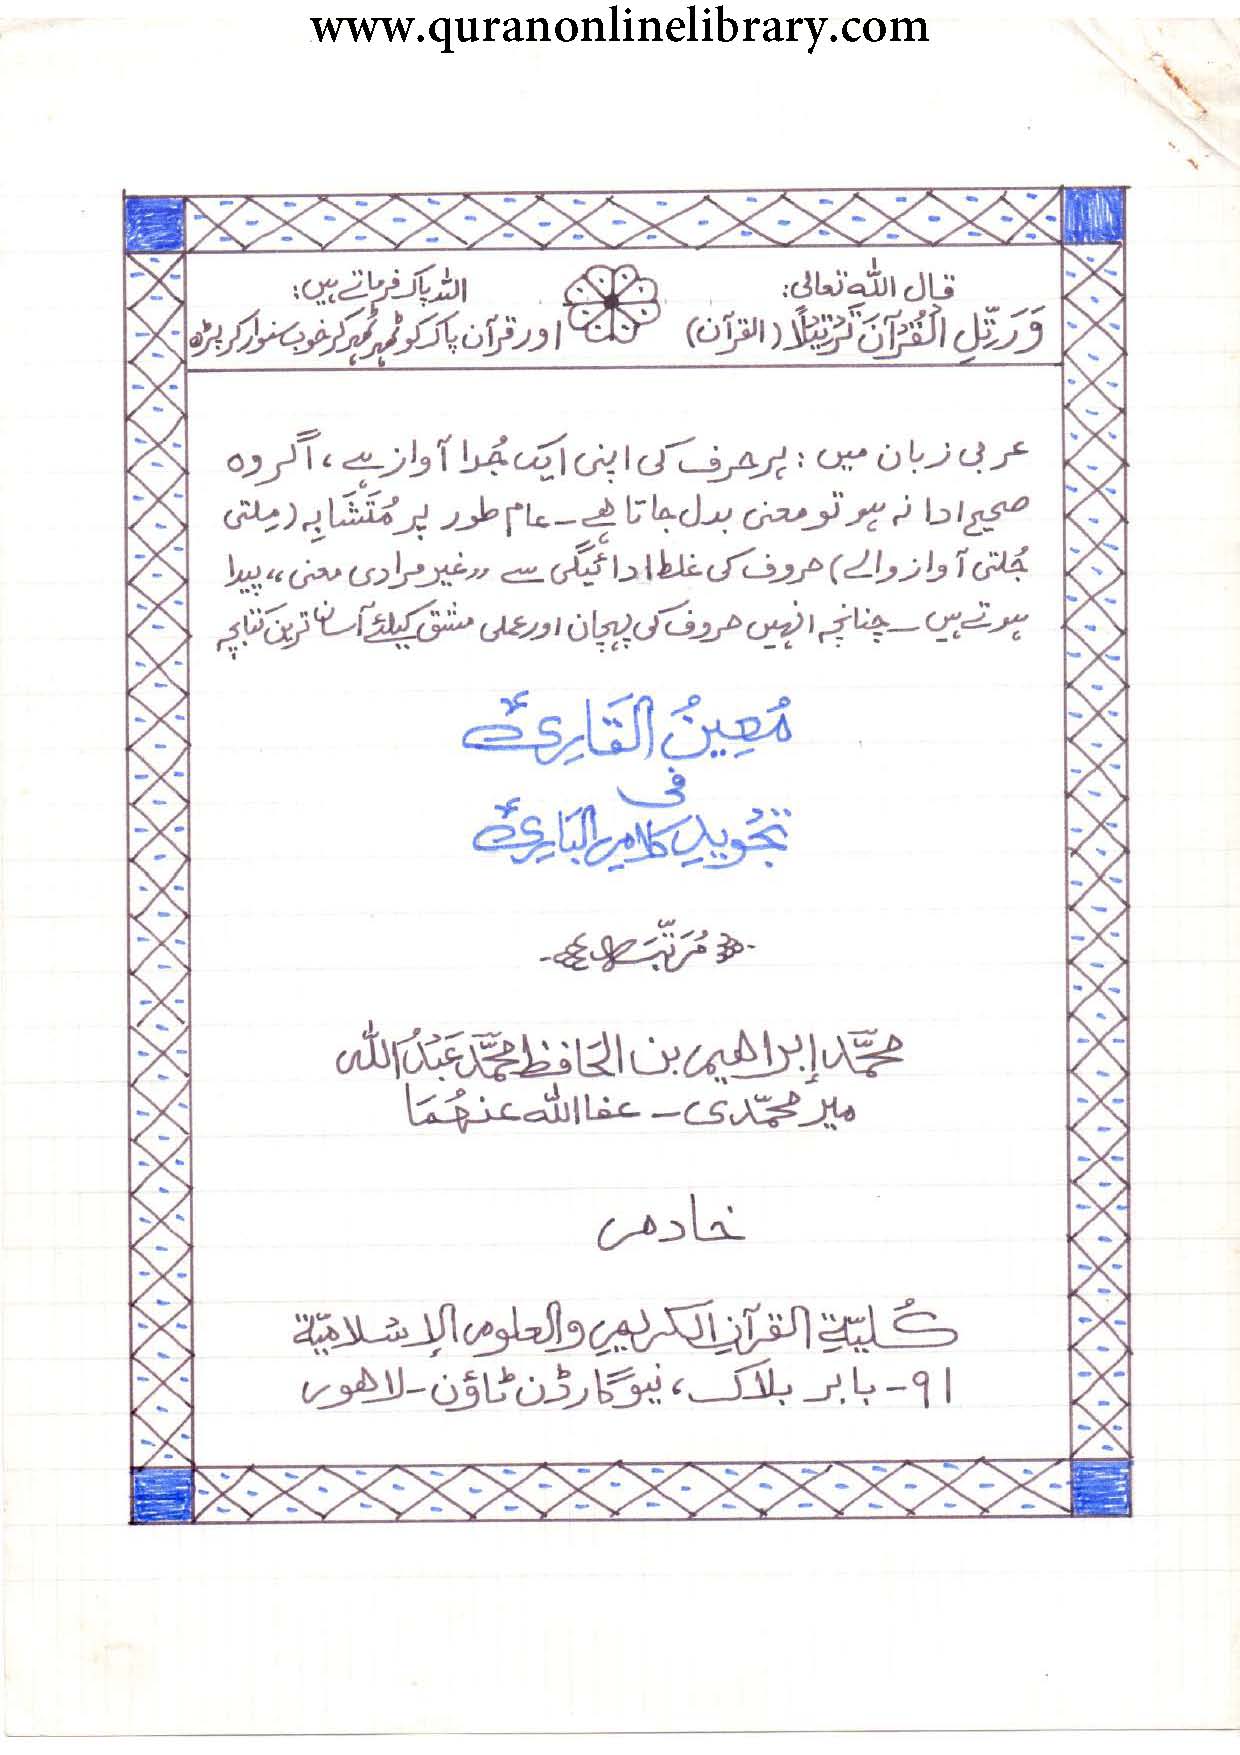 www.quranonlinelibrary.com
قال اللہ تعالی:
وَرَتِّلِ الْقُرْآنَ تَرْتِیْلًا (القرآن)
اللہ پاک فرماتے ہیں:
اور قرآن پاک کو ٹھہر ٹھہر کر خوب سنوار کر پڑھ
عربی زبان میں: ہر حرف کی اپنی ایک جُدا آواز ہے، اگر وہ
صحیح ادا نہ ہو تو معنی بدل جاتا ہے۔ عام طور پر مُتَشَابِہ (مِلتی
جُلتی آواز والے) حروف کی غلط ادائیگی سے ,,غیر مرادی معنی،، پیدا
ہوتے ہیں۔ چنانچہ انہیں حروف کی پہچان اور عملی مشق کیلئے آسان ترین کتابچہ
مُعِینُ القَارِیْ
فی
تَجْوِیدِ کَلَامِ البَارِیْ
مُرَتِّبَہ
محمَّد إبراھیم بن الحَافظ محمَّد عَبْدُ اللّٰہ
میر محمّدی – عفا اللّٰہ عنہُمَا
خادم
کُلیّۃ القرآنِ الکریمِ والعلومِ الإسلامیّۃ
۹۱- بابر بلاک، نیو گارڈن ٹاؤن - لاھور